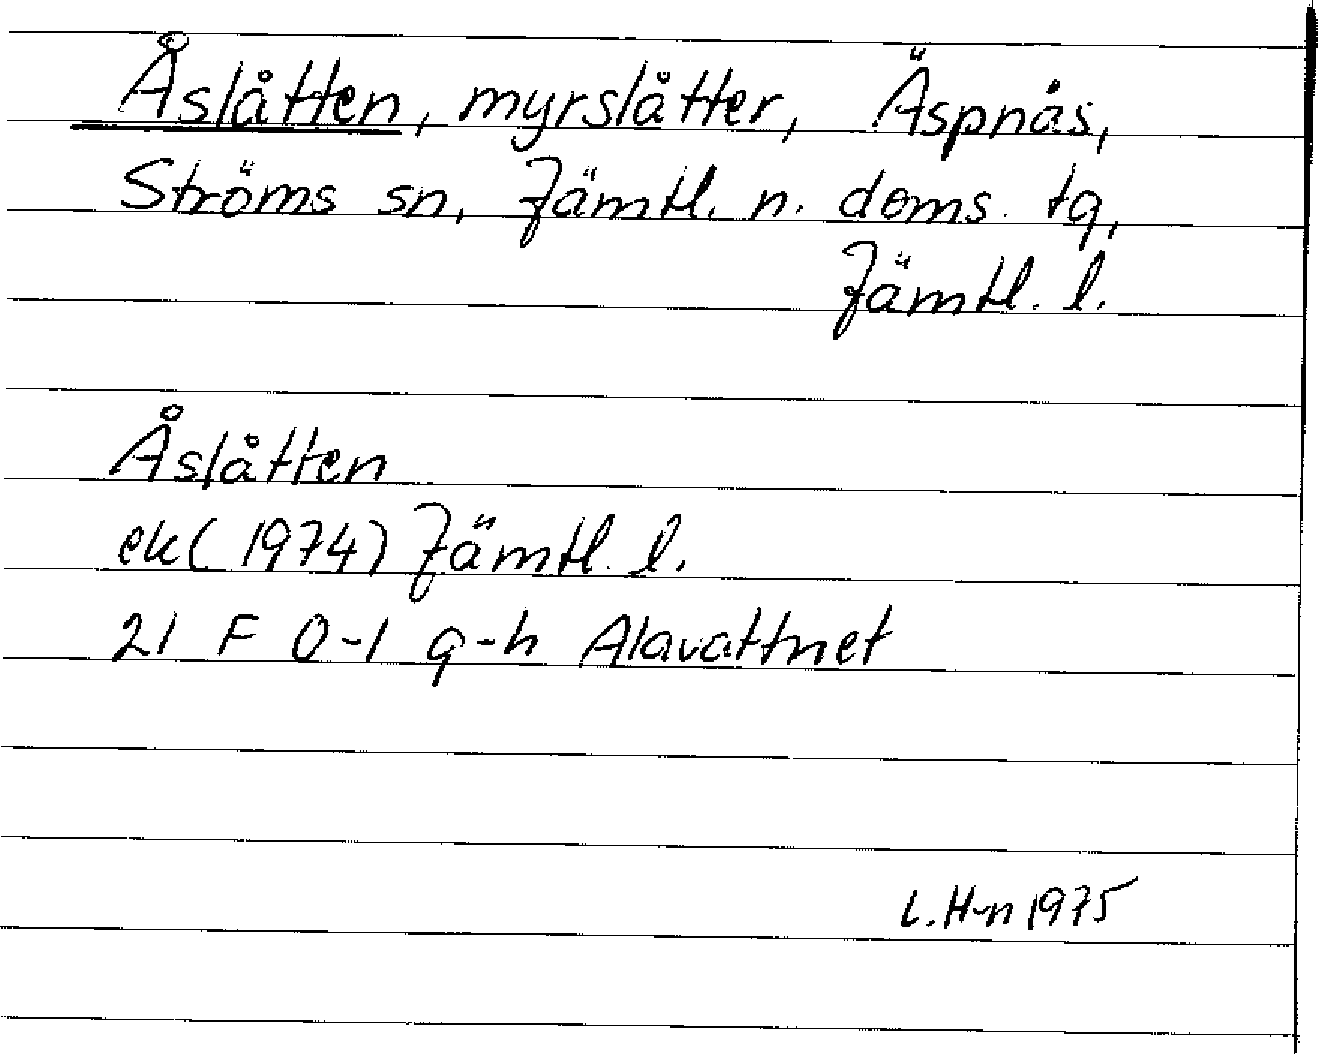 Åslåtten, myrslåtter, Äspnås,
Ströms sn, Jämtl. n. doms. tg,
Jämtl. l.
Åslåtten
ek (1974) Jämtl. l.
21 F 0-1 g-h Alavattnet
L. H-n 1975